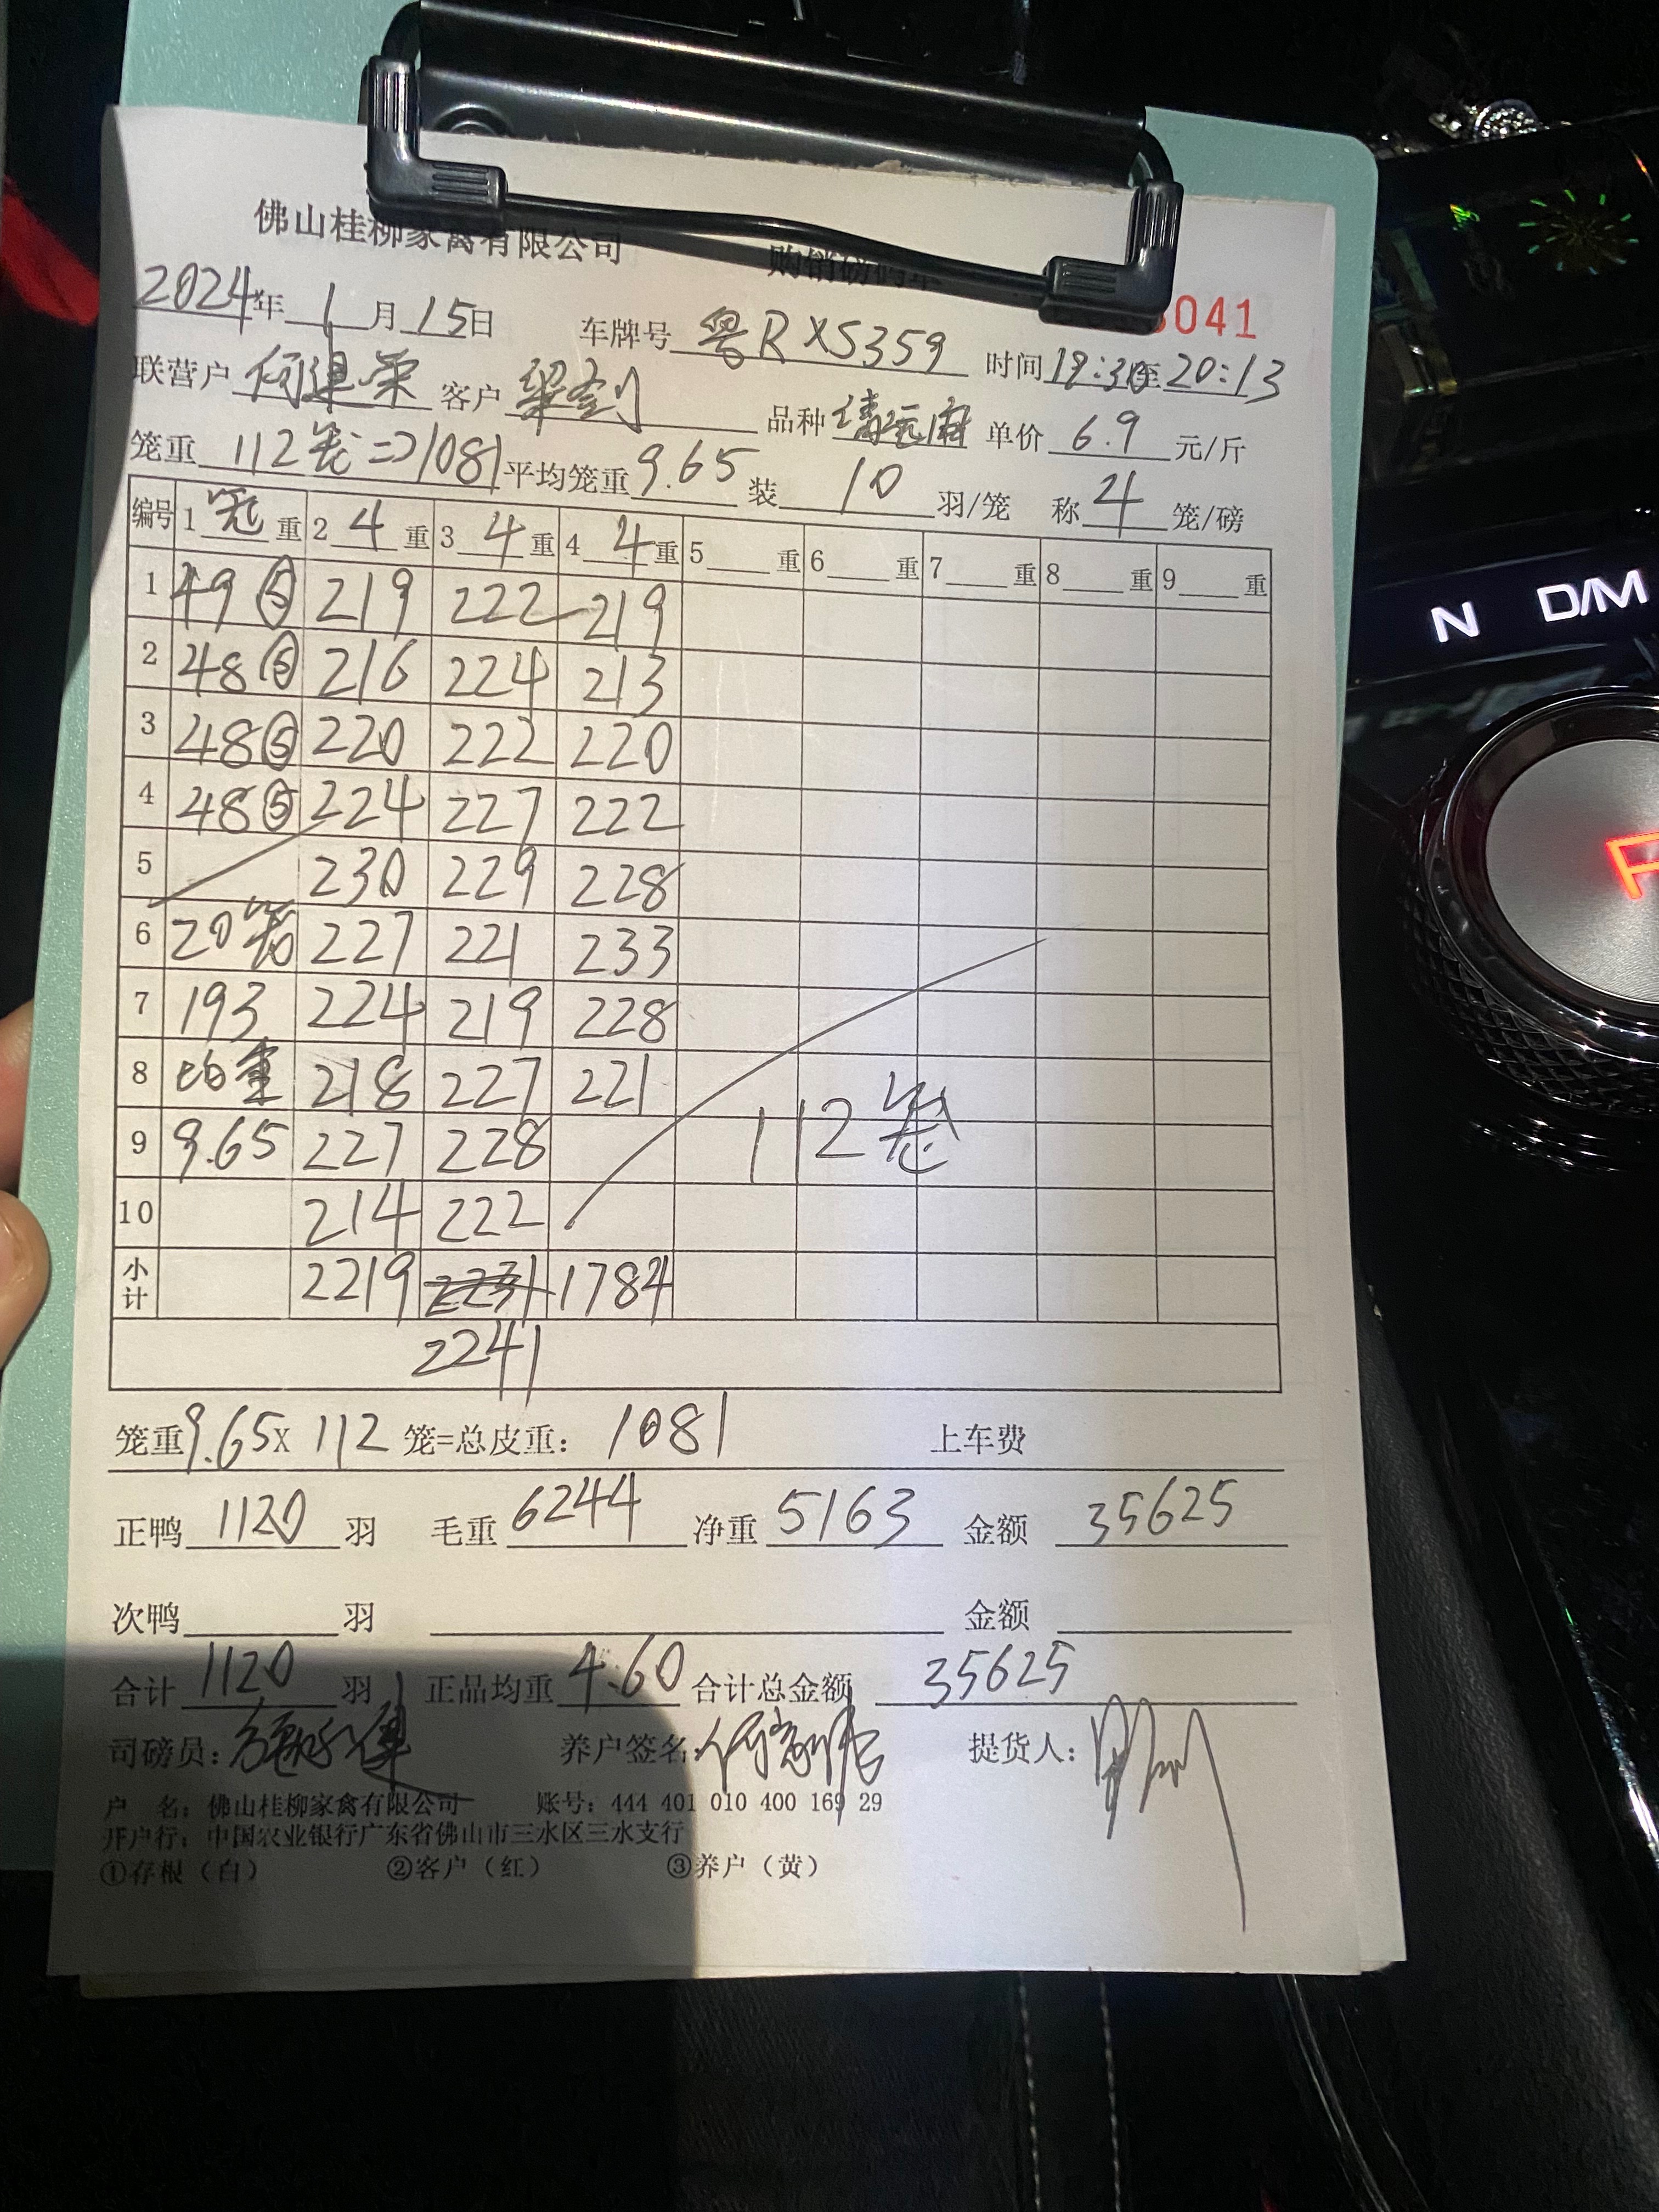 佛山桂柳家禽有限公司 购销磅码单
041
2024年1月15日 车牌号 粤RXS359 时间 19:30至20:13
联营户 何建荣 客户 梁剑 品种 清远麻 单价 6.9 元/斤
笼重 112笼=>1081 平均笼重 9.65 装 10 羽/笼 称 4 笼/磅
编号 1 笼 重 2 4 重 3 4 重 4 4 重 5 重 6 重 7 重 8 重 9 重
1 49⑤ 219 222 219
2 48⑤ 216 224 213
3 48⑤ 220 222 220
4 48⑤ 224 227 222
5 230 229 228
6 20笼 227 221 233
7 193 224 219 228
8 均重 218 227 221 112笼
9 9.65 227 228
10 214 222
小计 2219 2231 1784
2241
笼重9.65X 112 笼=总皮重: 1081 上车费
正鸭 1120 羽 毛重 6244 净重 5163 金额 35625
次鸭 羽 金额
合计 1120 羽 正品均重 4.60 合计总金额 35625
司磅员: 养户签名 提货人:
户 名: 佛山桂柳家禽有限公司 账号: 444 401 010 400 169 29
开户行: 中国农业银行广东省佛山市三水区三水支行
①存根(白) ②客户(红) ③养户(黄)
N D/M